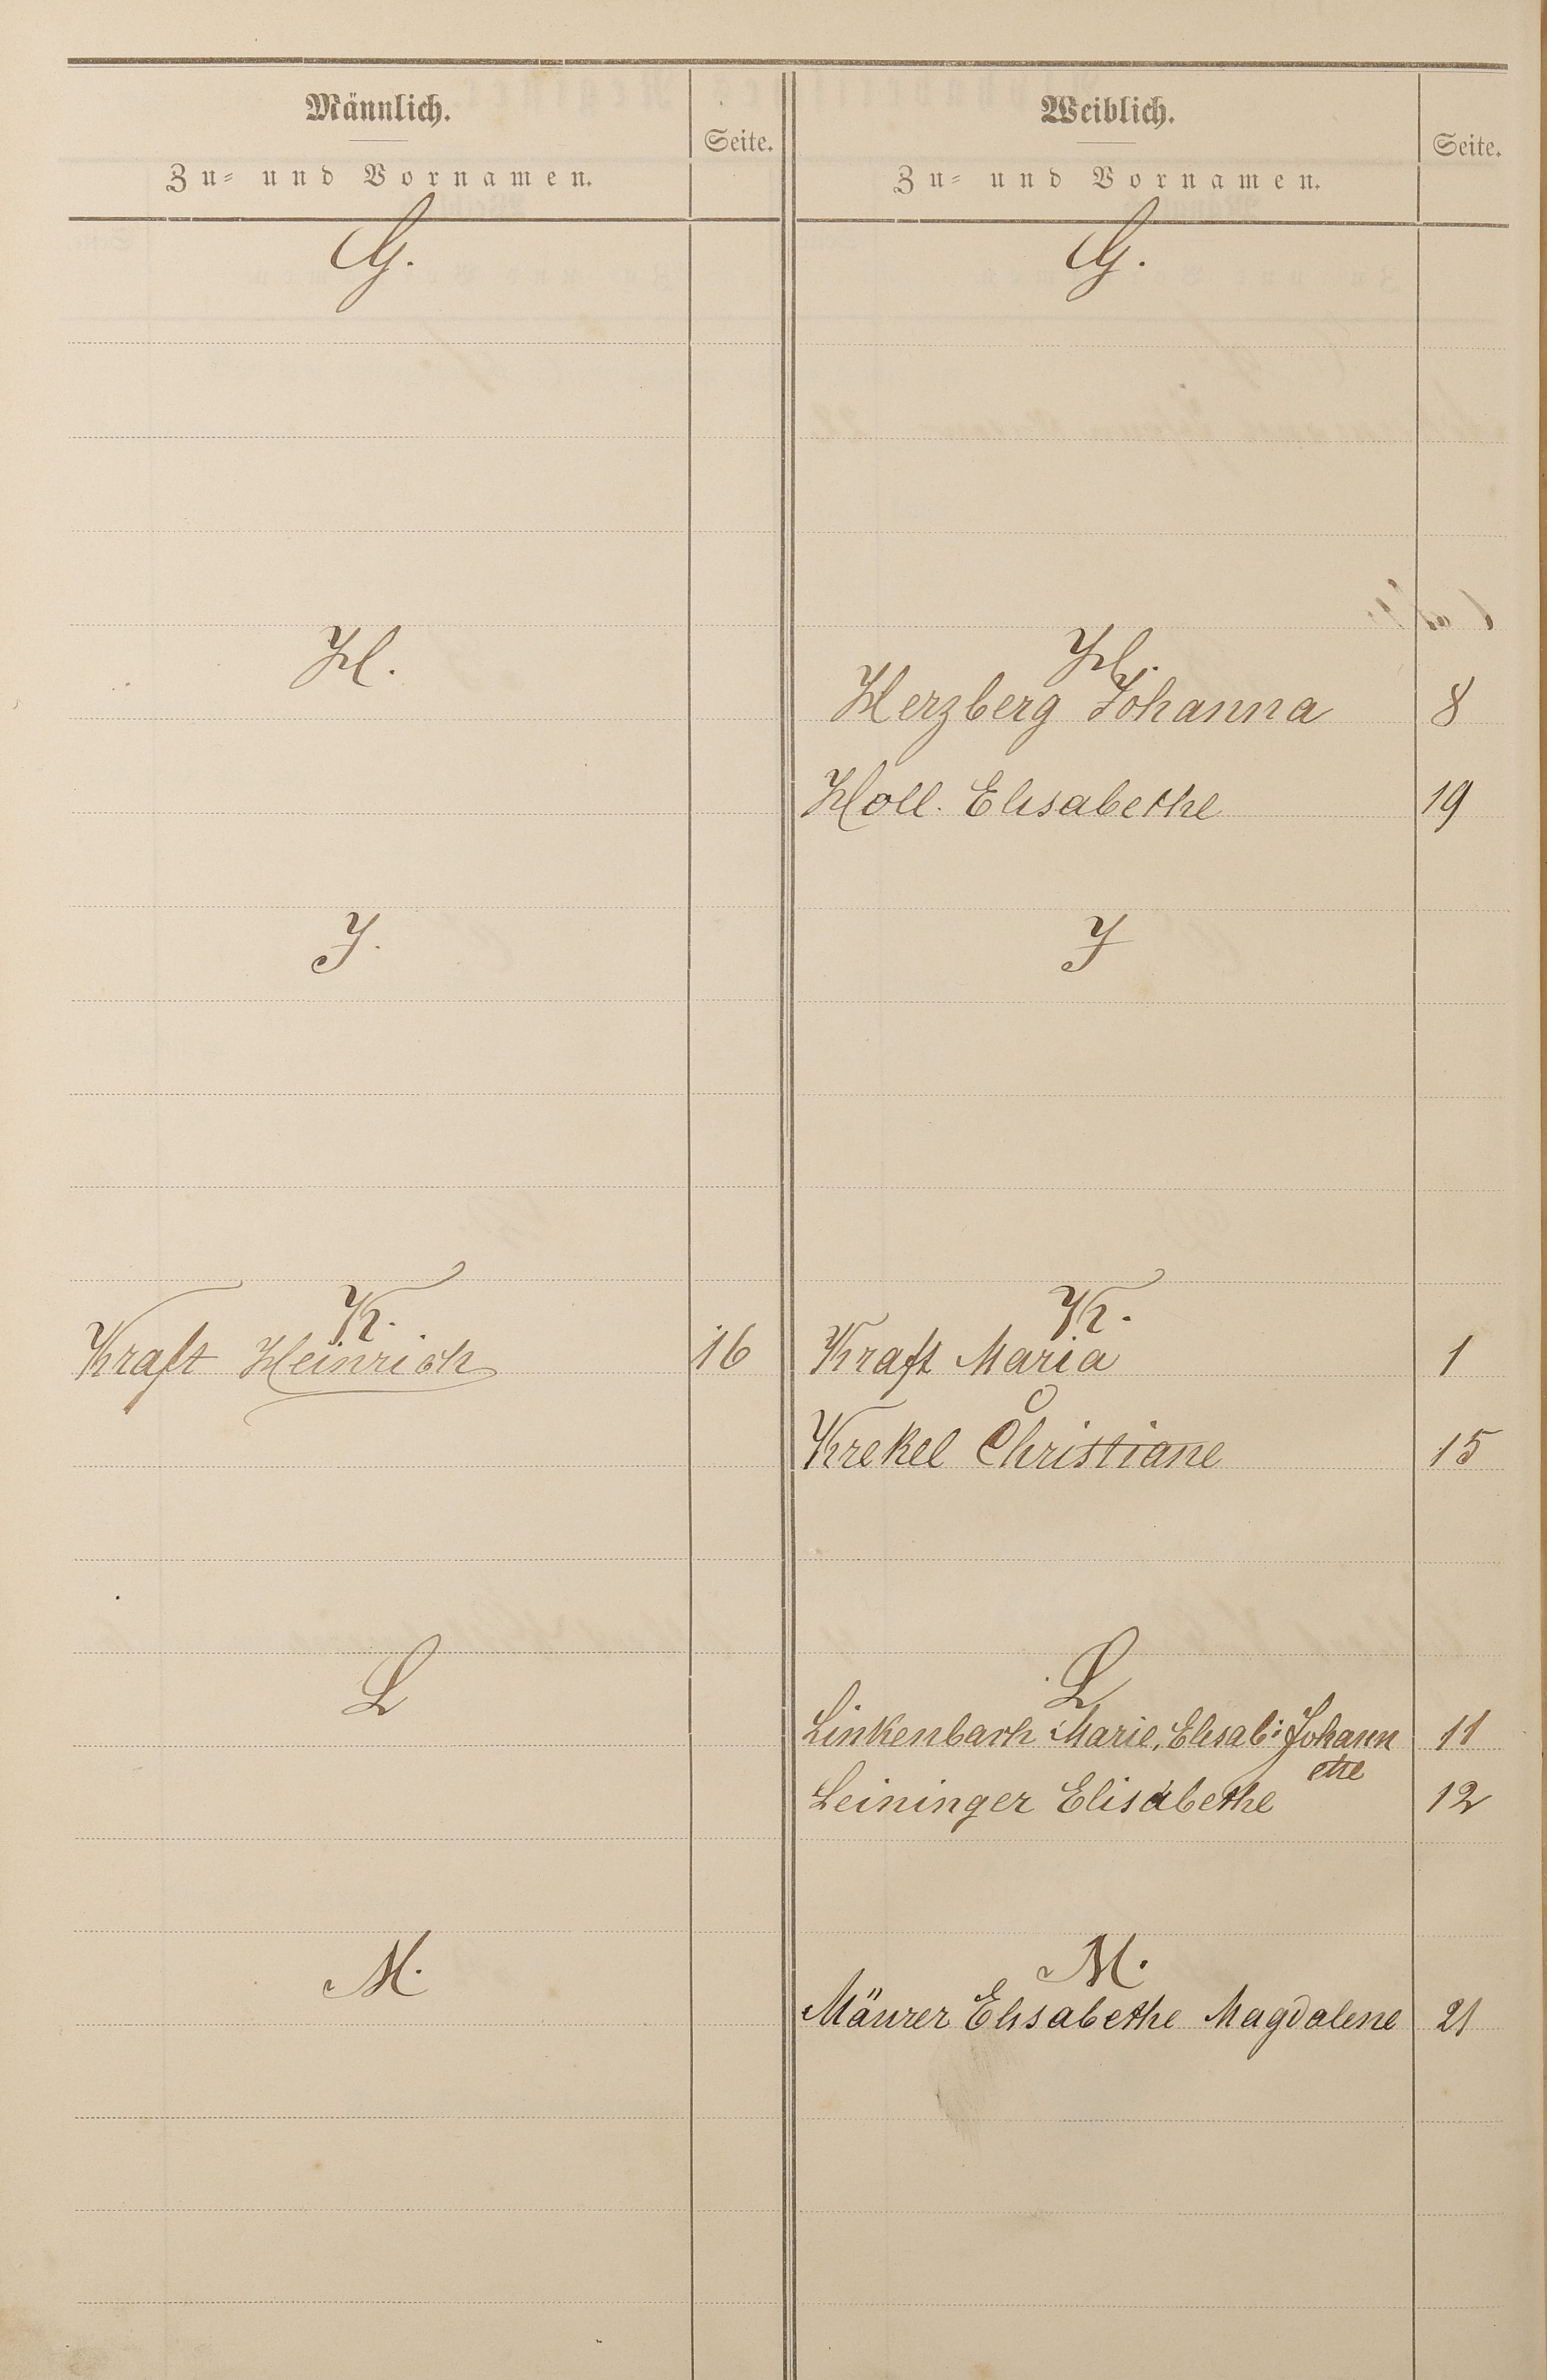 Männlich.
Seite.
Zu- und Vornamen.
Weiblich.
Seite.
Zu- und Vornamen.
G.
G.
H.
H.
Herzberg Johanna 8
Holl. Elisabethe 19
J.
J
K.
K.
Kraft Heinrich 16
Kraft Maria 1
Krekel Christiane 15
L
L
Linkenbach Marie, Elisab: Johann 11
ette
Leininger Elisabethe 12
M.
M.
Mäurer Elisabethe Magdalene 21